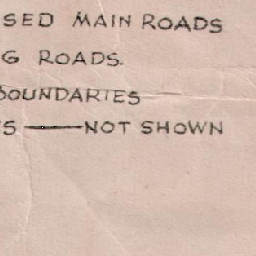 SED MAIN ROADS
G ROADS.
BOUNDARIES
S —— NOT SHOWN